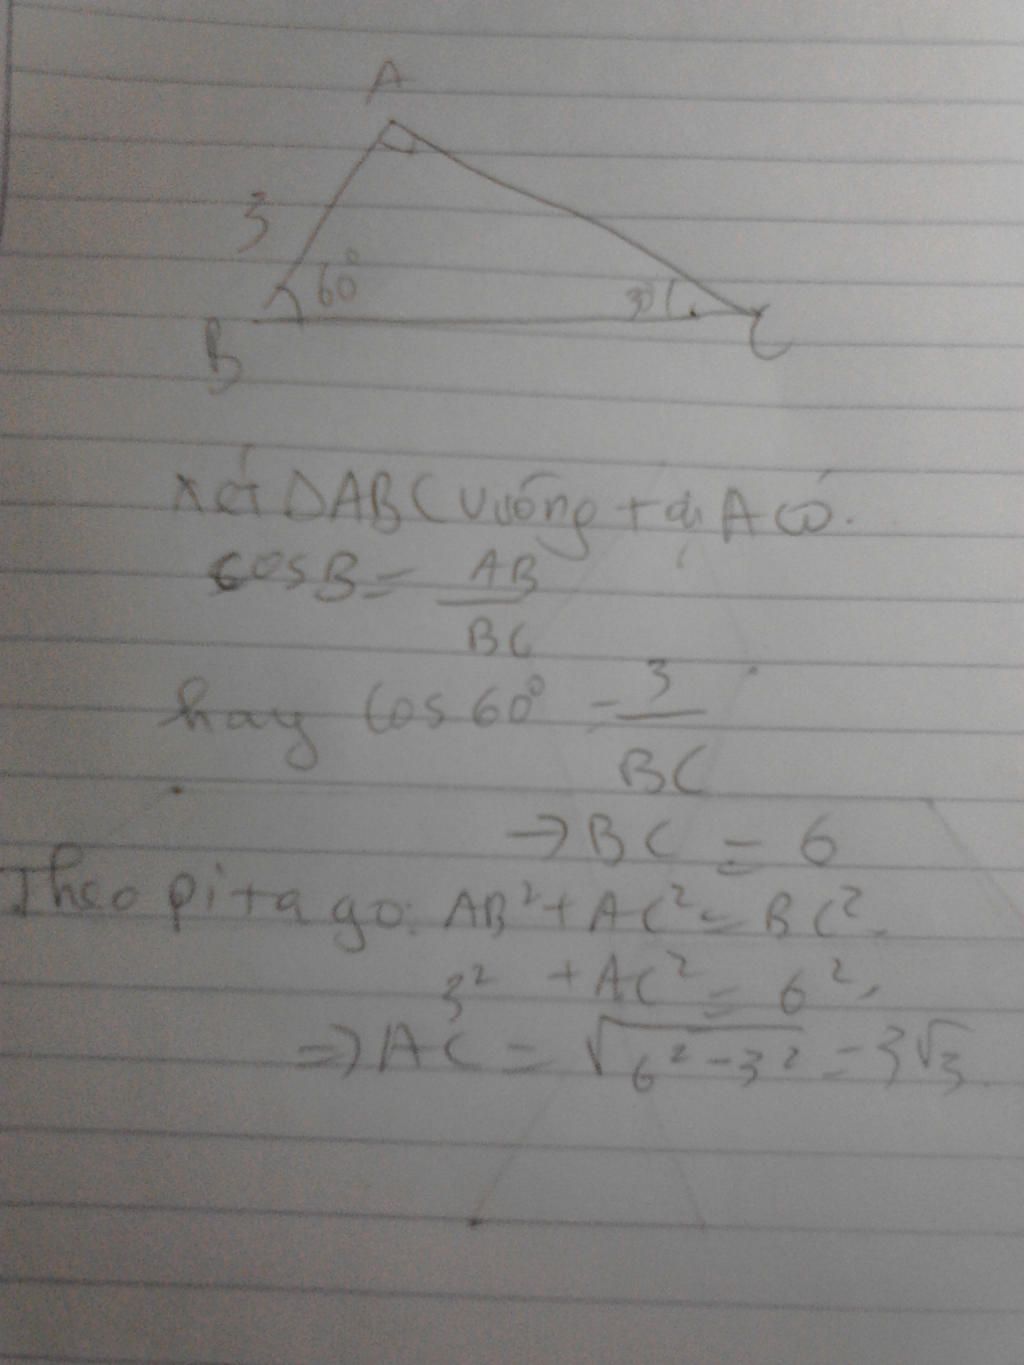 A
3
60°
30°
B
C
Xét ΔABC vuông tại A có.
cosB = AB
BC
hay cos 60° = 3
BC
→ BC = 6
Theo pitago: AB² + AC² = BC².
3² + AC² = 6².
⇒ AC = √6² - 3² = 3√3.